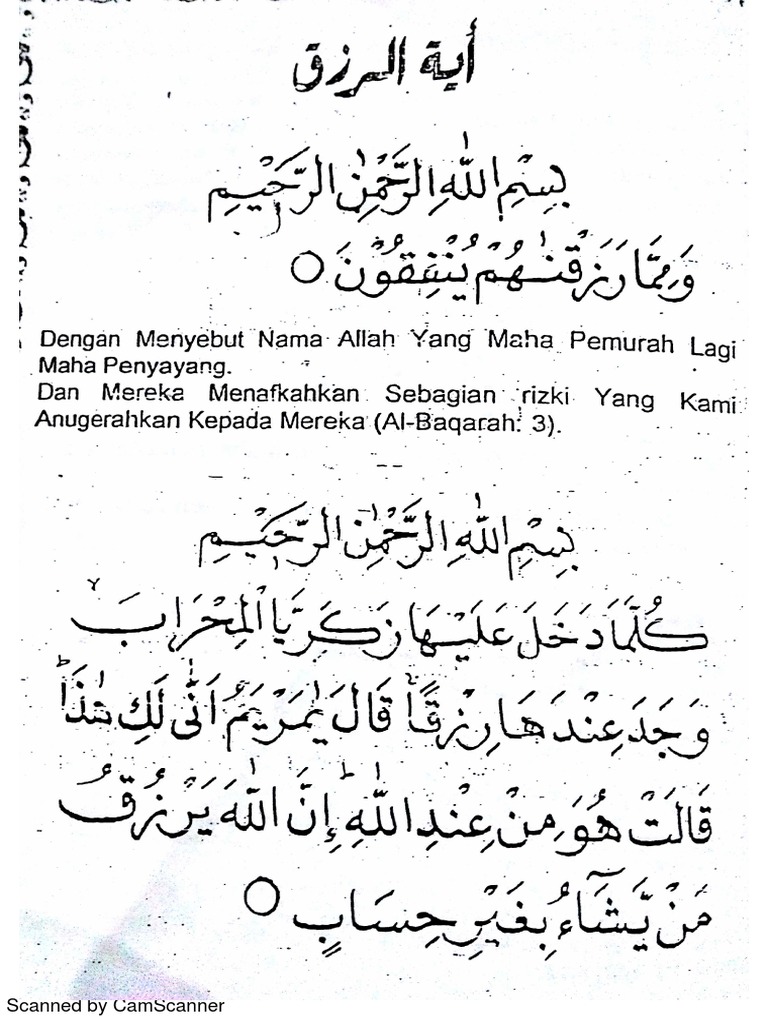 أية الرزق
بِسْمِ اللّٰهِ الرَّحْمٰنِ الرَّحِيْمِ
وَمِمَّا رَزَقْنٰهُمْ يُنْفِقُوْنَ ○
Dengan Menyebut Nama Allah Yang Maha Pemurah Lagi
Maha Penyayang.
Dan Mereka Menafkahkan Sebagian rizki Yang Kami
Anugerahkan Kepada Mereka (Al-Baqarah: 3).
بِسْمِ اللّٰهِ الرَّحْمٰنِ الرَّحِيْمِ
كُلَّمَا دَخَلَ عَلَيْهَا زَكَرِيَّا الْمِحْرَابَ ۙ
وَجَدَ عِنْدَهَا رِزْقًا ۚ قَالَ يٰمَرْيَمُ اَنّٰى لَكِ هٰذَا ؕ
قَالَتْ هُوَ مِنْ عِنْدِ اللّٰهِ ؕ إِنَّ اللّٰهَ يَرْزُقُ
مَنْ يَّشَآءُ بِغَيْرِ حِسَابٍ ○
Scanned by CamScanner